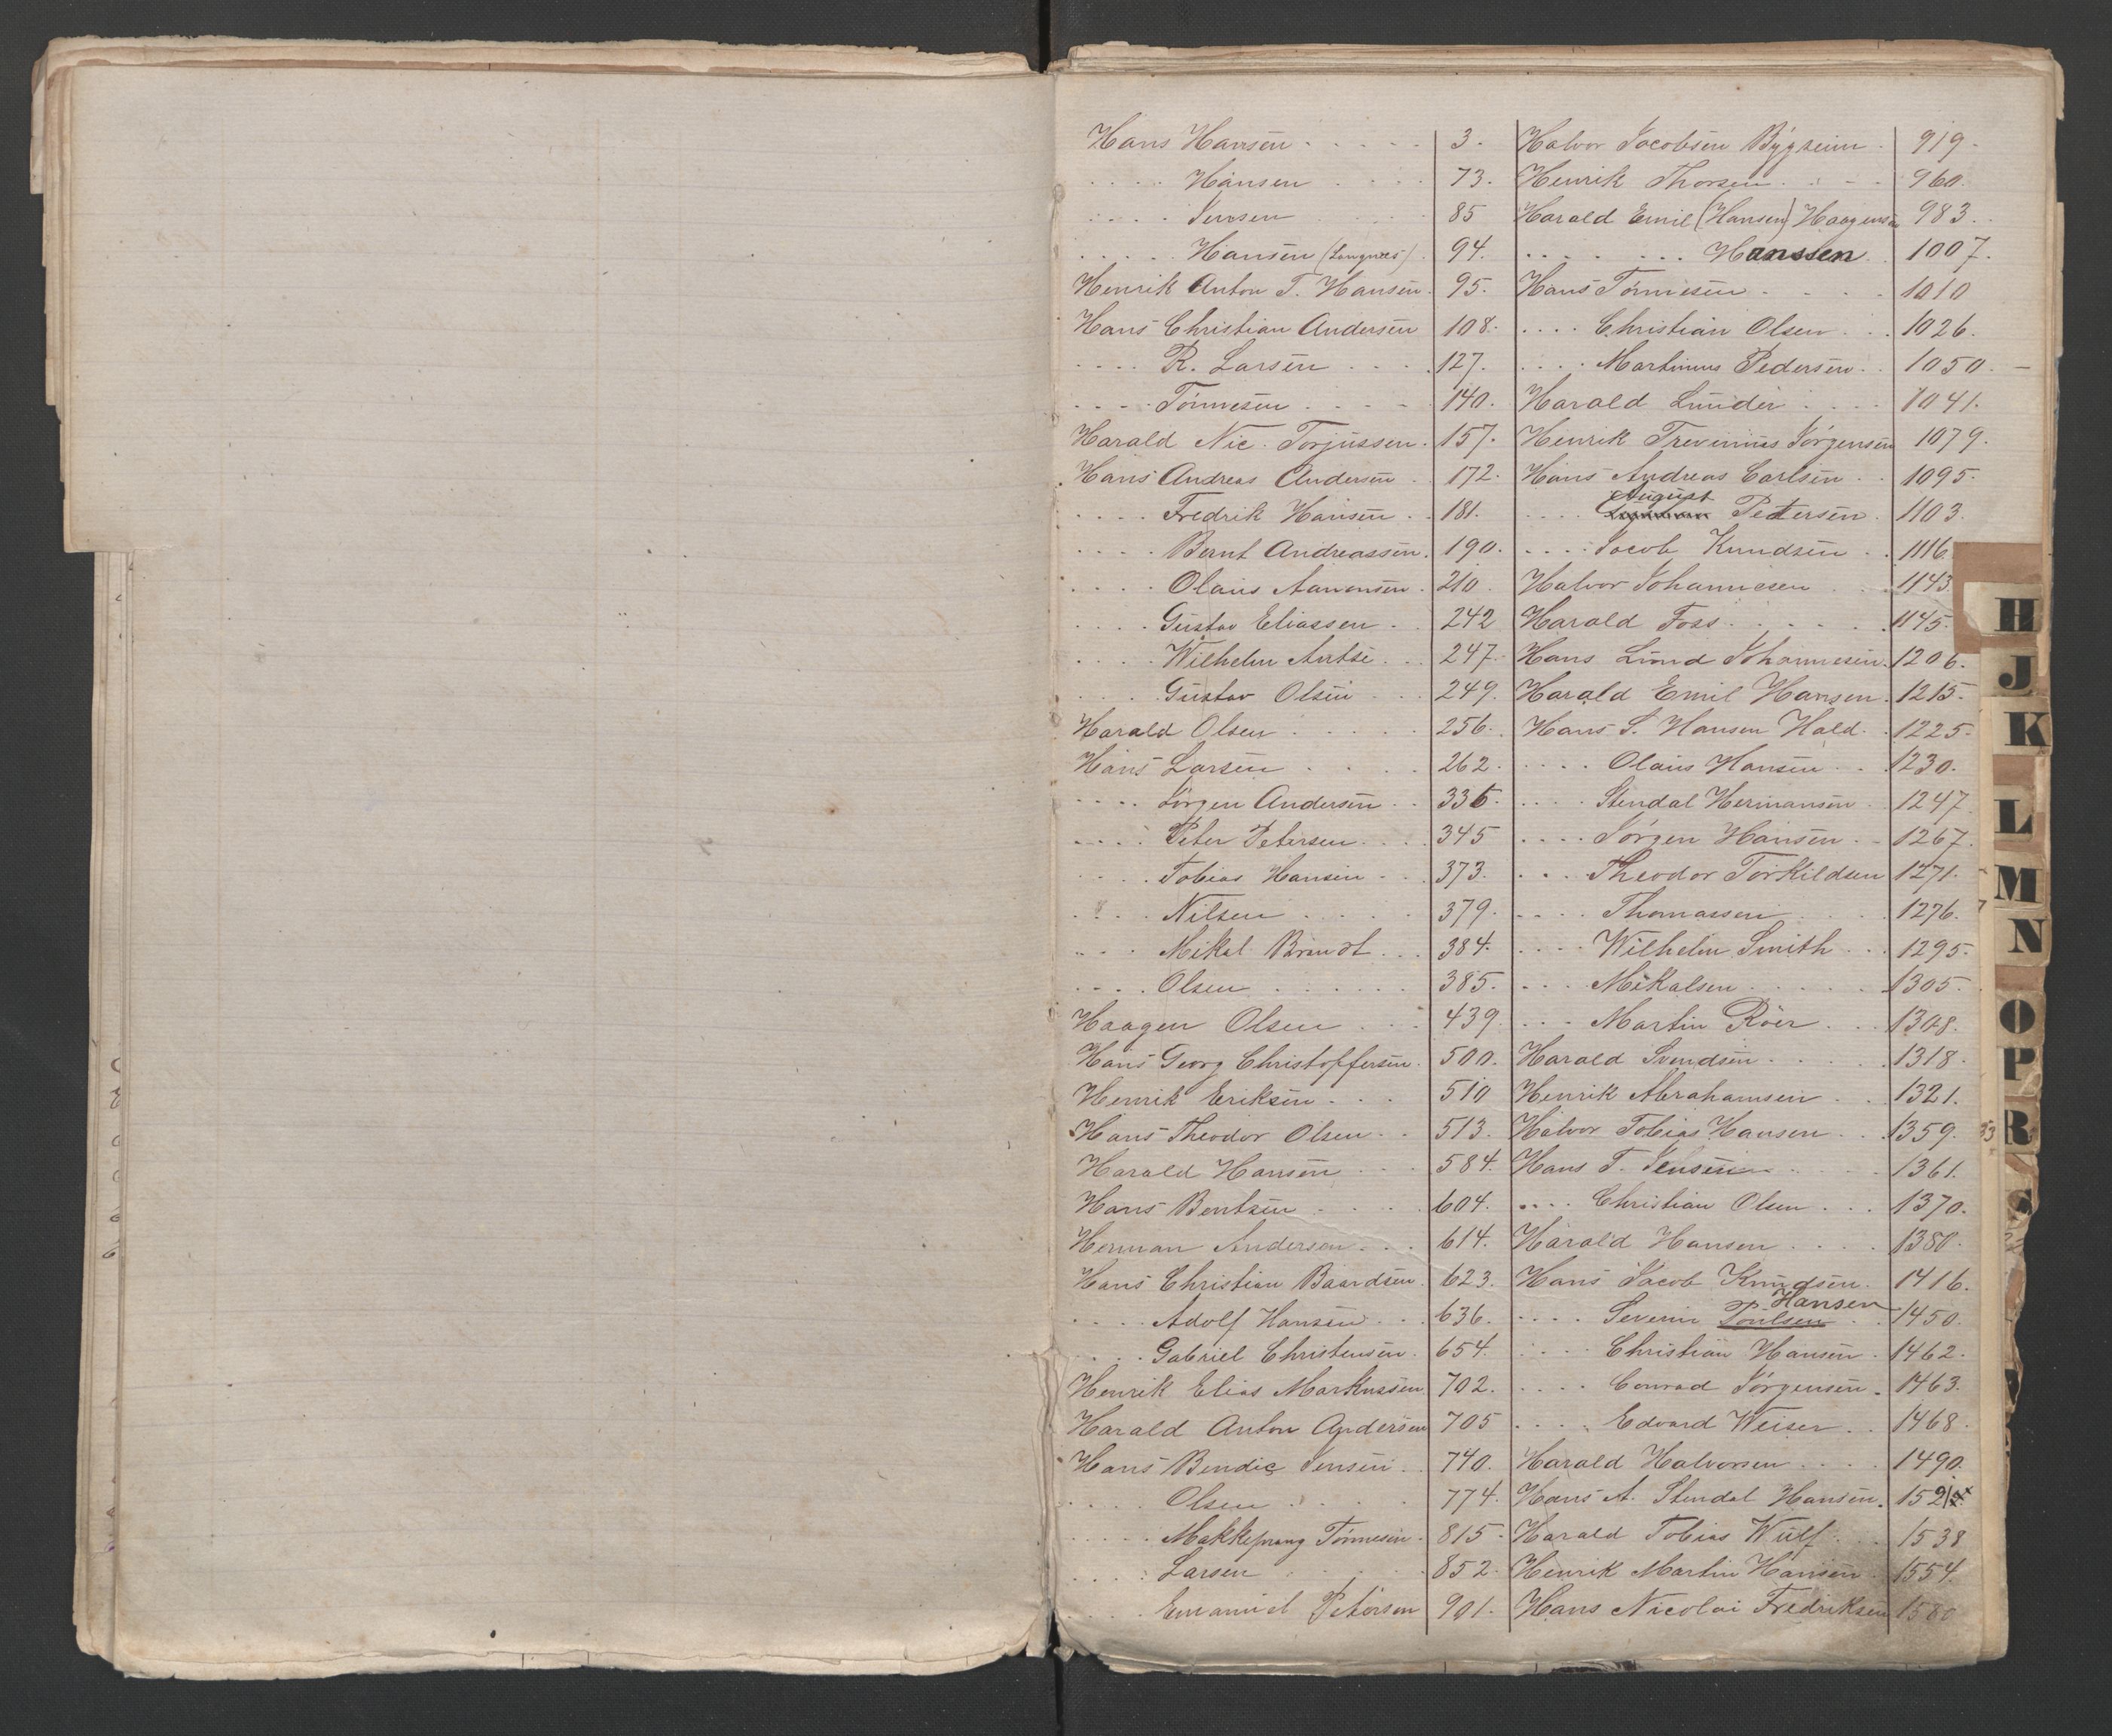 Hans Hansen . . . . . 3.
. . . . Hansen . . . . 73.
. . . . Jensen . . . . 85
. . . . Hansen (Langnæs) . 94.
Henrik Anton T. Hansen . 95.
Hans Christian Andersen 108.
. . . . R. Larsen . . . . 127.
. . . . Tönnesen . . . . 140.
Harald Nic. Torjussen . 157.
Hans Andreas Andersen . 172.
. . . . Fredrik Hansen . . 181.
. . . . Bernt Andreassen . 190.
. . . . Olaus Aanonsen . 210.
. . . . Gustav Eliassen . . 242
. . . . Wilhelm . . . 247.
. . . . Gustav Olsen . . . 249.
Harald Olsen . . . . . 256.
Hans Larsen . . . . 262.
. . . . Jörgen Andersen . . 335.
. . . . Peter Petersen . . . 345
. . . . Tobias Hansen . . . 373.
. . . . Nilsen . . . . . 379.
. . . . Mikal Brandt . . . 384.
. . . . Olsen . . . . . . 385.
Haagen Olsen . . . 439.
Hans Georg Christoffersen . 500.
Henrik Eriksen . . . 510
Hans Theodor Olsen . . 513.
Harald Hansen . . . 584.
Hans Bentsen . . . . . 604.
Herman Andersen . . . 614.
Hans Christian Baardsen . 623.
. . . . Adolf Hansen . . . 636.
. . . . Gabriel Christensen . 654.
Henrik Elias Markussen 702.
Harald Anton Andersen 705
Hans Bendic Jensen . . 740.
. . . . Olsen . . . . . 774.
. . . . Makkeprang Tönnesen . 815.
. . . . Larsen . . . . . 852.
. . . . Emanuel Petersen 901.
Halvor Jacobsen Bygseim . 919.
Henrik Thorsen . . . . 960.
Harald Emil (Hansen) Haagensen 983.
. . . . . . . Hanssen . . 1007.
Hans Tönnesen . . . . 1010
. . . . Christian Olsen . . . 1026.
. . . . Martinius Pedersen . . 1050.
Harald Lunder . . . . 1041.
Henrik Trevinius Jörgensen 1079.
Hans Andreas Carlsen . . 1095.
August
. . . . Petersen . 1103.
. . . . Jacob Knudsen . . 1116.
Halvor Johannesen . . . 1143.
Harald Foss . . . . . . 1145.
Hans Lund Johannesen . 1206.
Harald Emil Hansen . 1215.
Hans S. Hansen Hald . . 1225.
. . . . Olaus Hansen . . . 1230.
. . . . Stendal Hermansen . 1247
. . . . Jörgen Hansen . . 1267.
. . . Theodor Torkildsen 1271.
. . . . Thomassen . . . . 1276.
. . . . Wilhelm Smith . . . 1295.
. . . . Mikalsen . . . . . 1305.
. . . . Martin Röer . . . 1308.
Harald Svendsen . . . . 1318.
Henrik Abrahamsen . . 1321.
Halvor Tobias Hansen . . . 1359.
Hans T. Jensen . . . . 1361.
. . . . Christian Olsen . . . 1370.
Harald Hansen . . . . 1380.
Hans Jacob Knudsen . 1416.
Hansen
. . . . Severin Poulsen . . 1450.
. . . . Christian Hansen . 1462.
. . . . Conrad Jörgensen . 1463.
. . . . Edvard Weiser . . 1468.
Harald Halvorsen . . . . 1490.
Hans A. Stendal Hansen .
Harald Tobias Wulf . . . 1538
Henrik Martin Hansen . 1554.
Hans Nicolai Fredriksen 1580
H
J
K
L
M
N
O
P
R
S